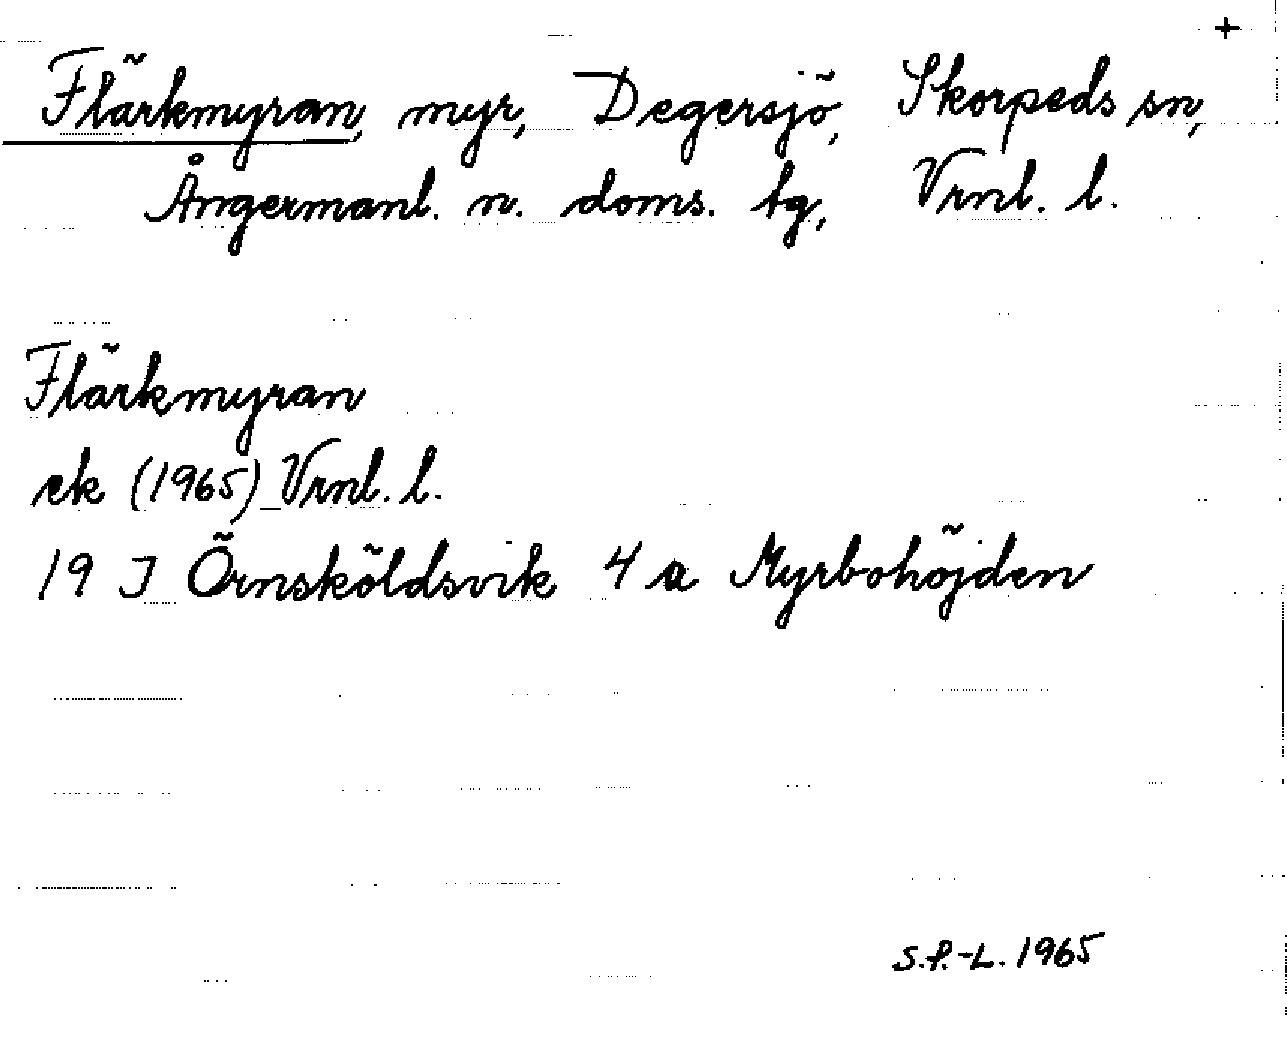 +
Flärkmyran, myr, Degersjö, Skorpeds sn,
Ångermanl. n. doms. tg, Vrnl. l.
Flärkmyran
ek (1965) Vrnl. l.
19 J Örnsköldsvik 4 a Myrbohöjden
S.P.-L. 1965